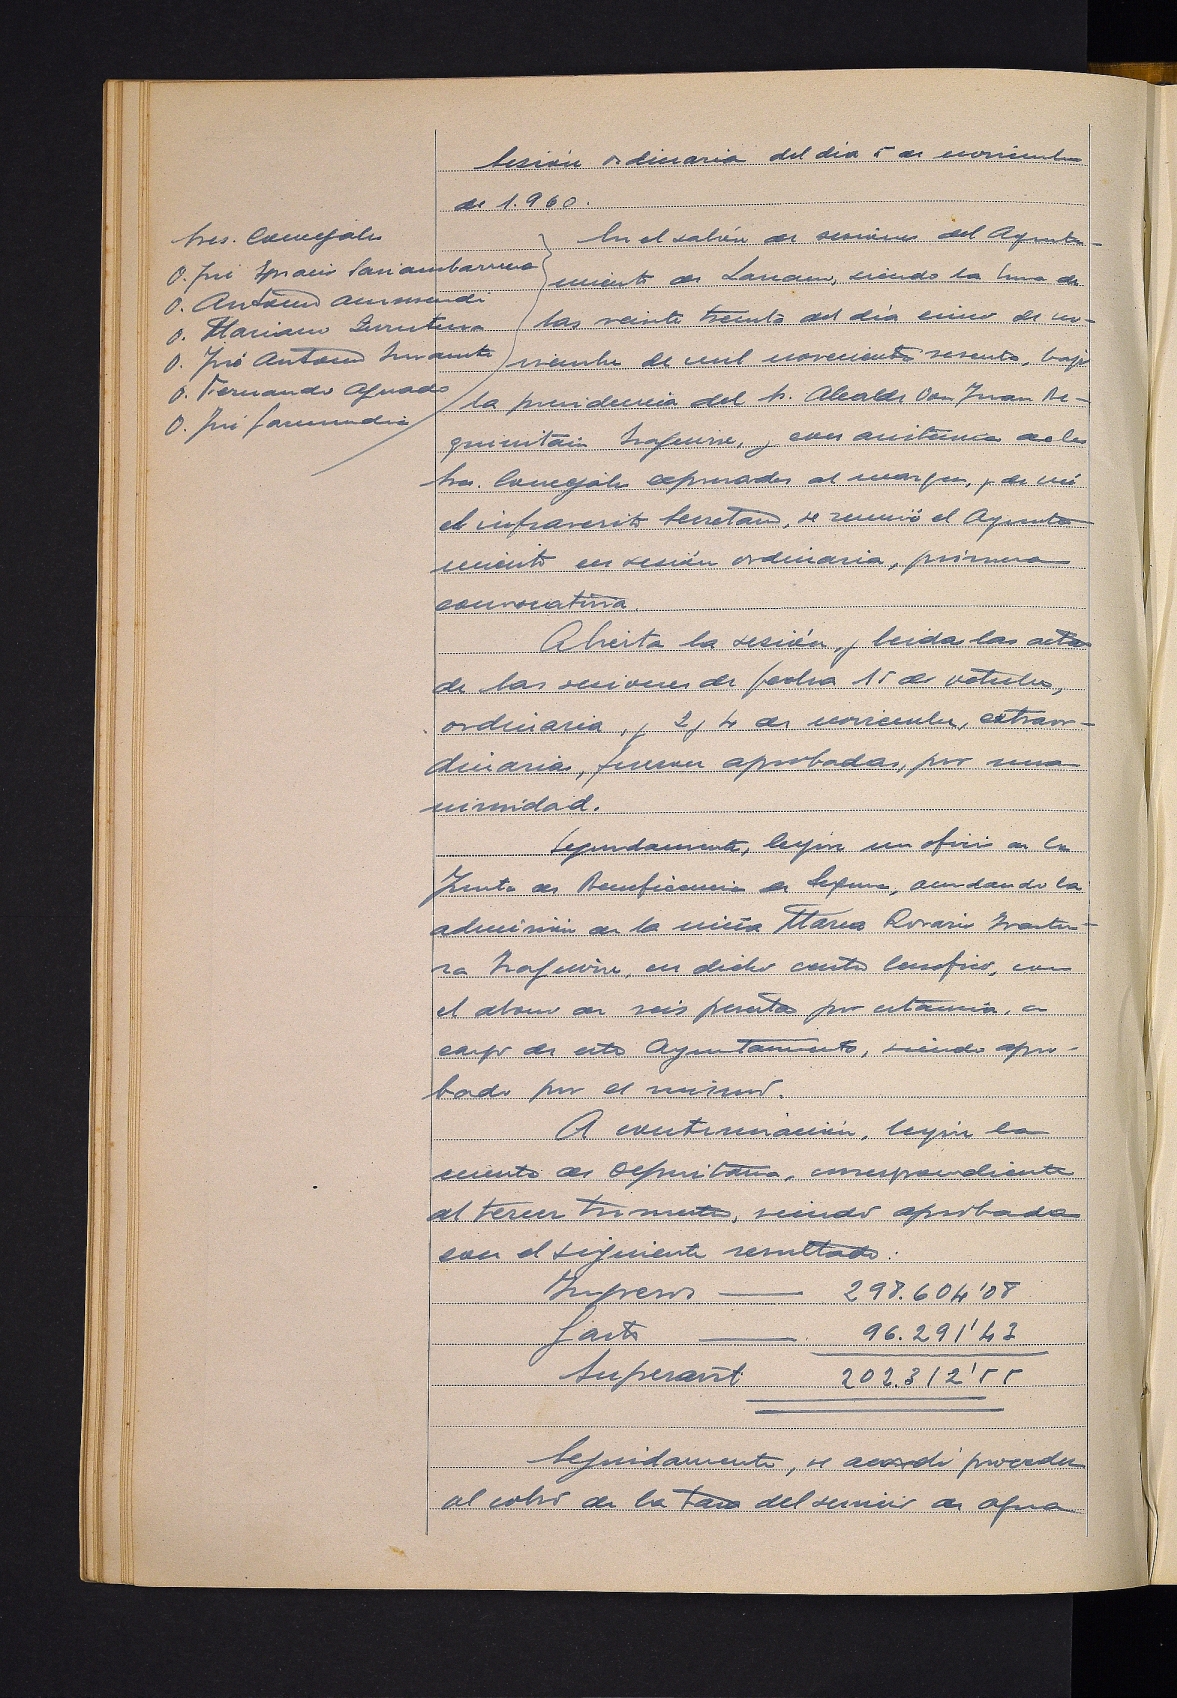 Sesión ordinaria del dia 5 de noviembre
de 1.960.
Sres. Concejales
D. José Ignacio Sariambarrena
D. Antonio
D. Mariano
D. José Antonio
D. Fernando Aguado
D. José Garmendia
En el salón de sesiones del Ayunta-
miento de Lazcano, siendo la hora de
las veinte treinta del día cinco de no-
viembre de mil novecientos sesenta, bajo
la presidencia del Sr. Alcalde Don Juan Be-
guiristain Iraguirre, y con asistencia de los
Sres. Concejales expresados al margen, y de mi
el infrascrito Secretario, se reunió el Ayunta
miento en sesión ordinaria, primera
convocatoria.
Abierta la sesión, y leida las actas
de las sesiones de fecha 15 de octubre,
ordinaria, y 2 y 4 de noviembre, extraor-
dinarias, fueron aprobadas, por una
nimidad.
Seguidamente, leyóse un oficio de la
Junta de Beneficencia de Segura, acordando la
admisión de la niña Maria Rosario
ra Iraguirre, en dicho centro benéfico, con
el abono de seis pesetas por estancia, a
cargo de este Ayuntamiento, siendo apro-
bado por el mismo.
A continuación, leyóse la
cuenta de Depositaria, correspondiente
al tercer trimestre, siendo aprobada
con el siguiente resultado:
Ingresos — 298.604'08
Gastos — 96.291'43
Superavit 202.312'55
Seguidamente, se acordó proceder
al cobro de la tasa del servicio de agua